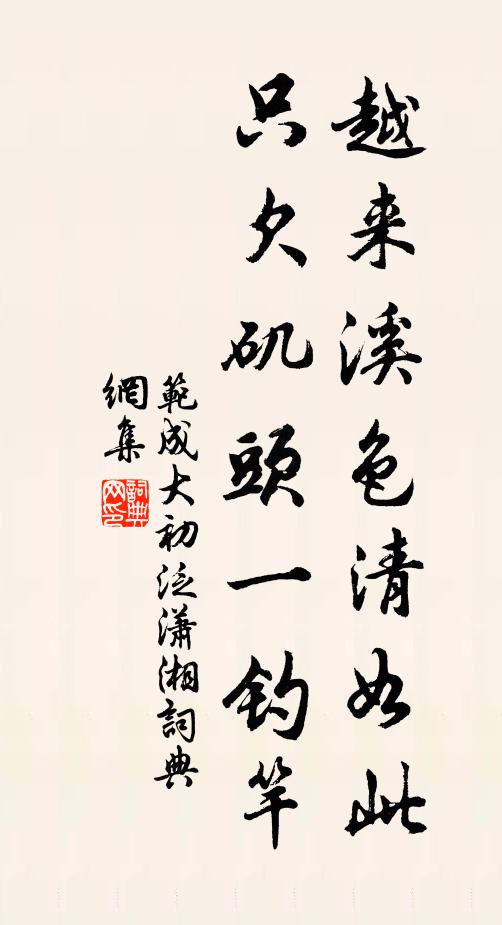 越来溪色清如此
只欠矶頭一钓竿
範成大初泛瀟湘詞典
網集
詞典
网印